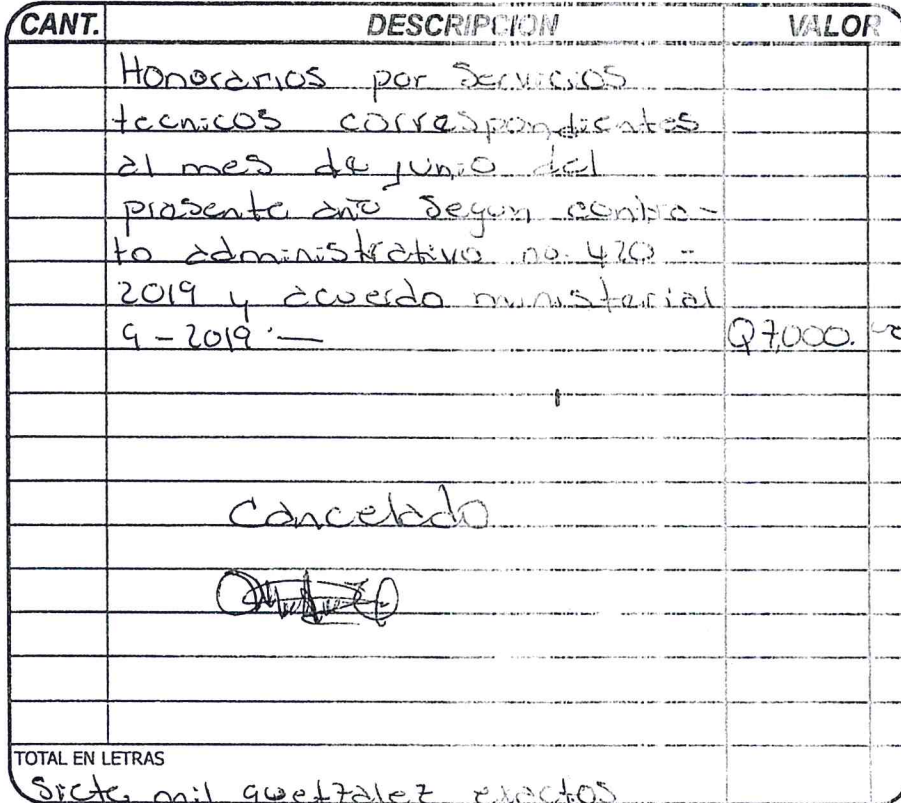 CANT. DESCRIPCION VALOR
Honorarios por Servicios
tecnicos correspondientes
al mes de junio del
presente año Segun contra-
to administrativo no. 420 -
2019 y acuerdo ministerial
9 - 2019 - Q7,000.
Cancelado
TOTAL EN LETRAS
Siete mil quetzalez exactos